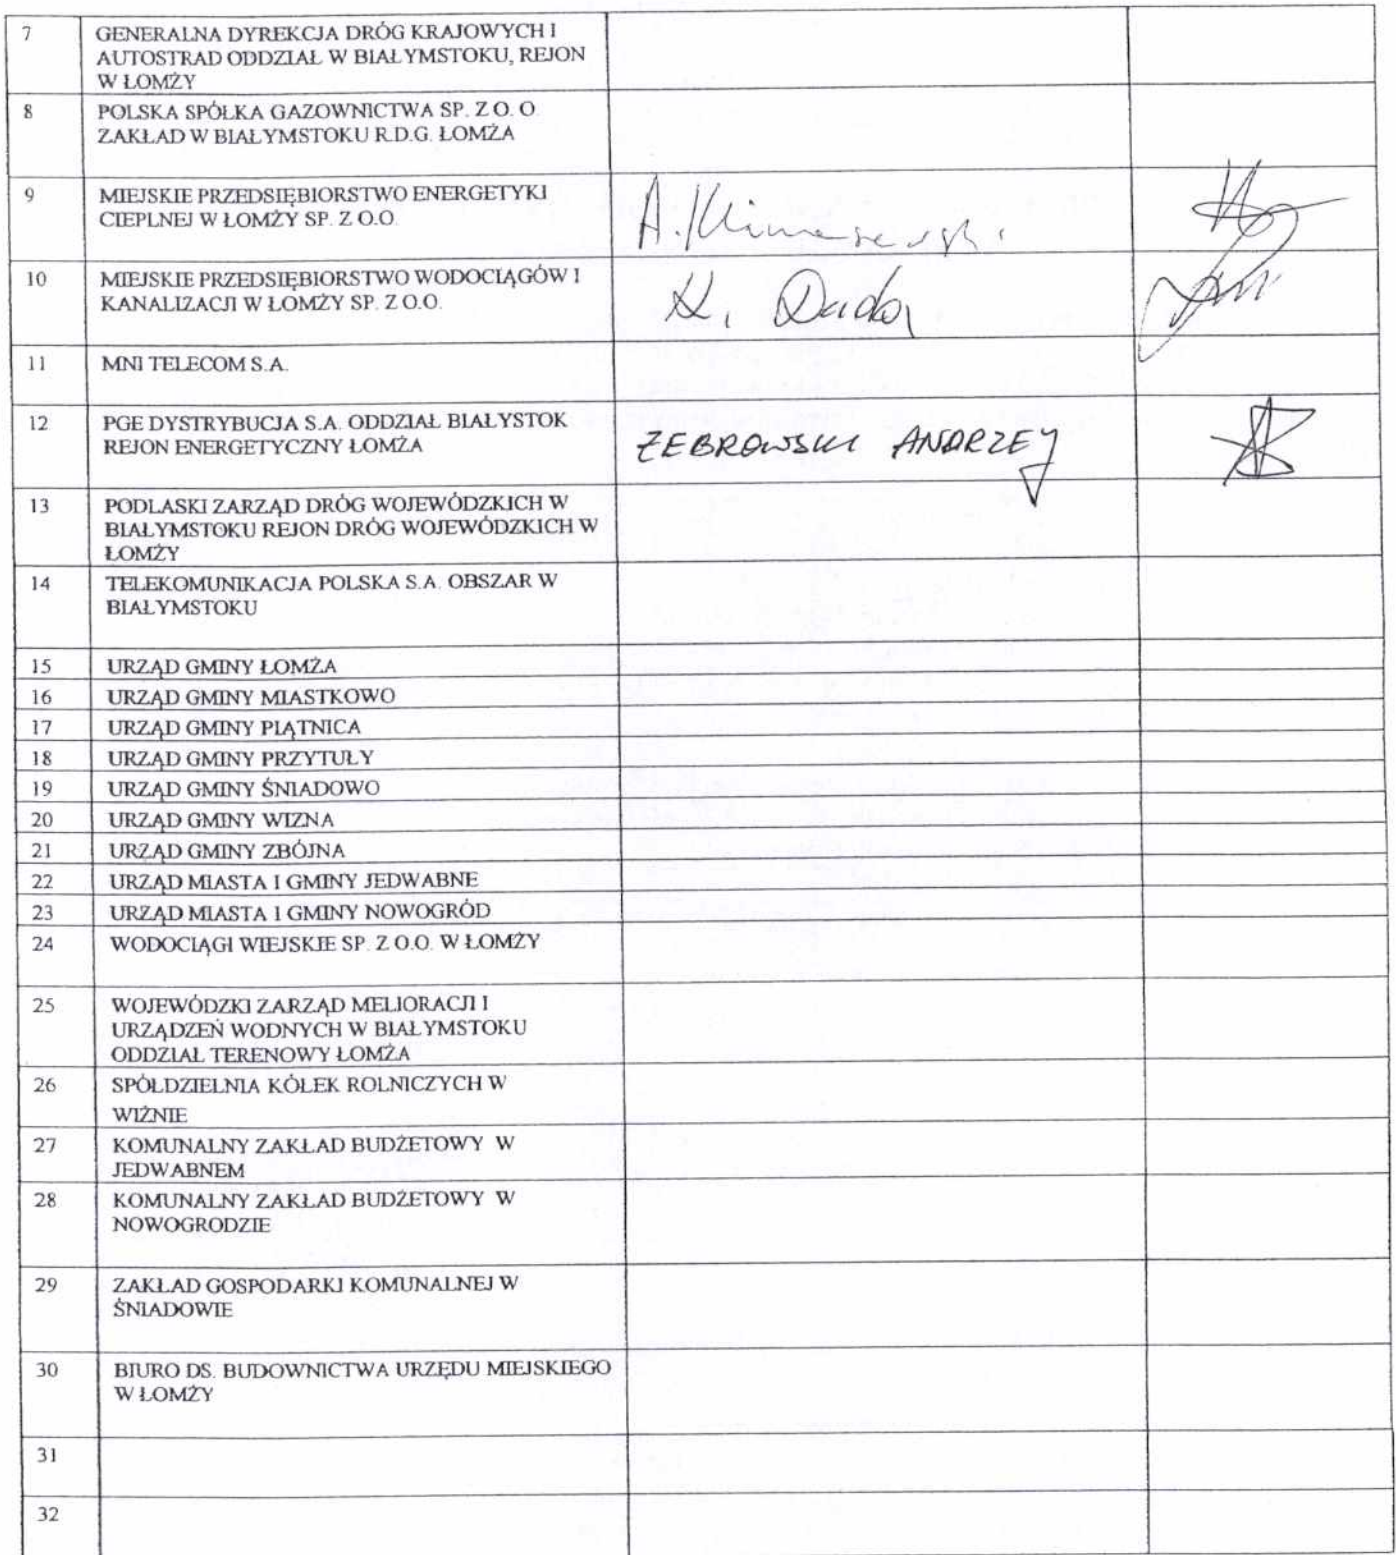 7 GENERALNA DYREKCJA DRÓG KRAJOWYCH I
AUTOSTRAD ODDZIAŁ W BIAŁYMSTOKU, REJON
W ŁOMŻY
8 POLSKA SPÓŁKA GAZOWNICTWA SP. Z O. O.
ZAKŁAD W BIAŁYMSTOKU R.D.G. ŁOMŻA
9 MIEJSKIE PRZEDSIĘBIORSTWO ENERGETYKI
CIEPLNEJ W ŁOMŻY SP. Z O.O.
A. Klimaszewski
10 MIEJSKIE PRZEDSIĘBIORSTWO WODOCIĄGÓW I
KANALIZACJI W ŁOMŻY SP. Z O.O.
K. Duda
11 MNI TELECOM S.A.
12 PGE DYSTRYBUCJA S.A. ODDZIAŁ BIAŁYSTOK
REJON ENERGETYCZNY ŁOMŻA
ZEBROWSKI ANDRZEJ
13 PODLASKI ZARZĄD DRÓG WOJEWÓDZKICH W
BIAŁYMSTOKU REJON DRÓG WOJEWÓDZKICH W
ŁOMŻY
14 TELEKOMUNIKACJA POLSKA S.A. OBSZAR W
BIAŁYMSTOKU
15 URZĄD GMINY ŁOMŻA
16 URZĄD GMINY MIASTKOWO
17 URZĄD GMINY PIĄTNICA
18 URZĄD GMINY PRZYTUŁY
19 URZĄD GMINY ŚNIADOWO
20 URZĄD GMINY WIZNA
21 URZĄD GMINY ZBÓJNA
22 URZĄD MIASTA I GMINY JEDWABNE
23 URZĄD MIASTA I GMINY NOWOGRÓD
24 WODOCIĄGI WIEJSKIE SP. Z O.O. W ŁOMŻY
25 WOJEWÓDZKI ZARZĄD MELIORACJI I
URZĄDZEŃ WODNYCH W BIAŁYMSTOKU
ODDZIAŁ TERENOWY ŁOMŻA
26 SPÓŁDZIELNIA KÓŁEK ROLNICZYCH W
WIŹNIE
27 KOMUNALNY ZAKŁAD BUDŻETOWY W
JEDWABNEM
28 KOMUNALNY ZAKŁAD BUDŻETOWY W
NOWOGRODZIE
29 ZAKŁAD GOSPODARKI KOMUNALNEJ W
ŚNIADOWIE
30 BIURO DS. BUDOWNICTWA URZĘDU MIEJSKIEGO
W ŁOMŻY
31
32